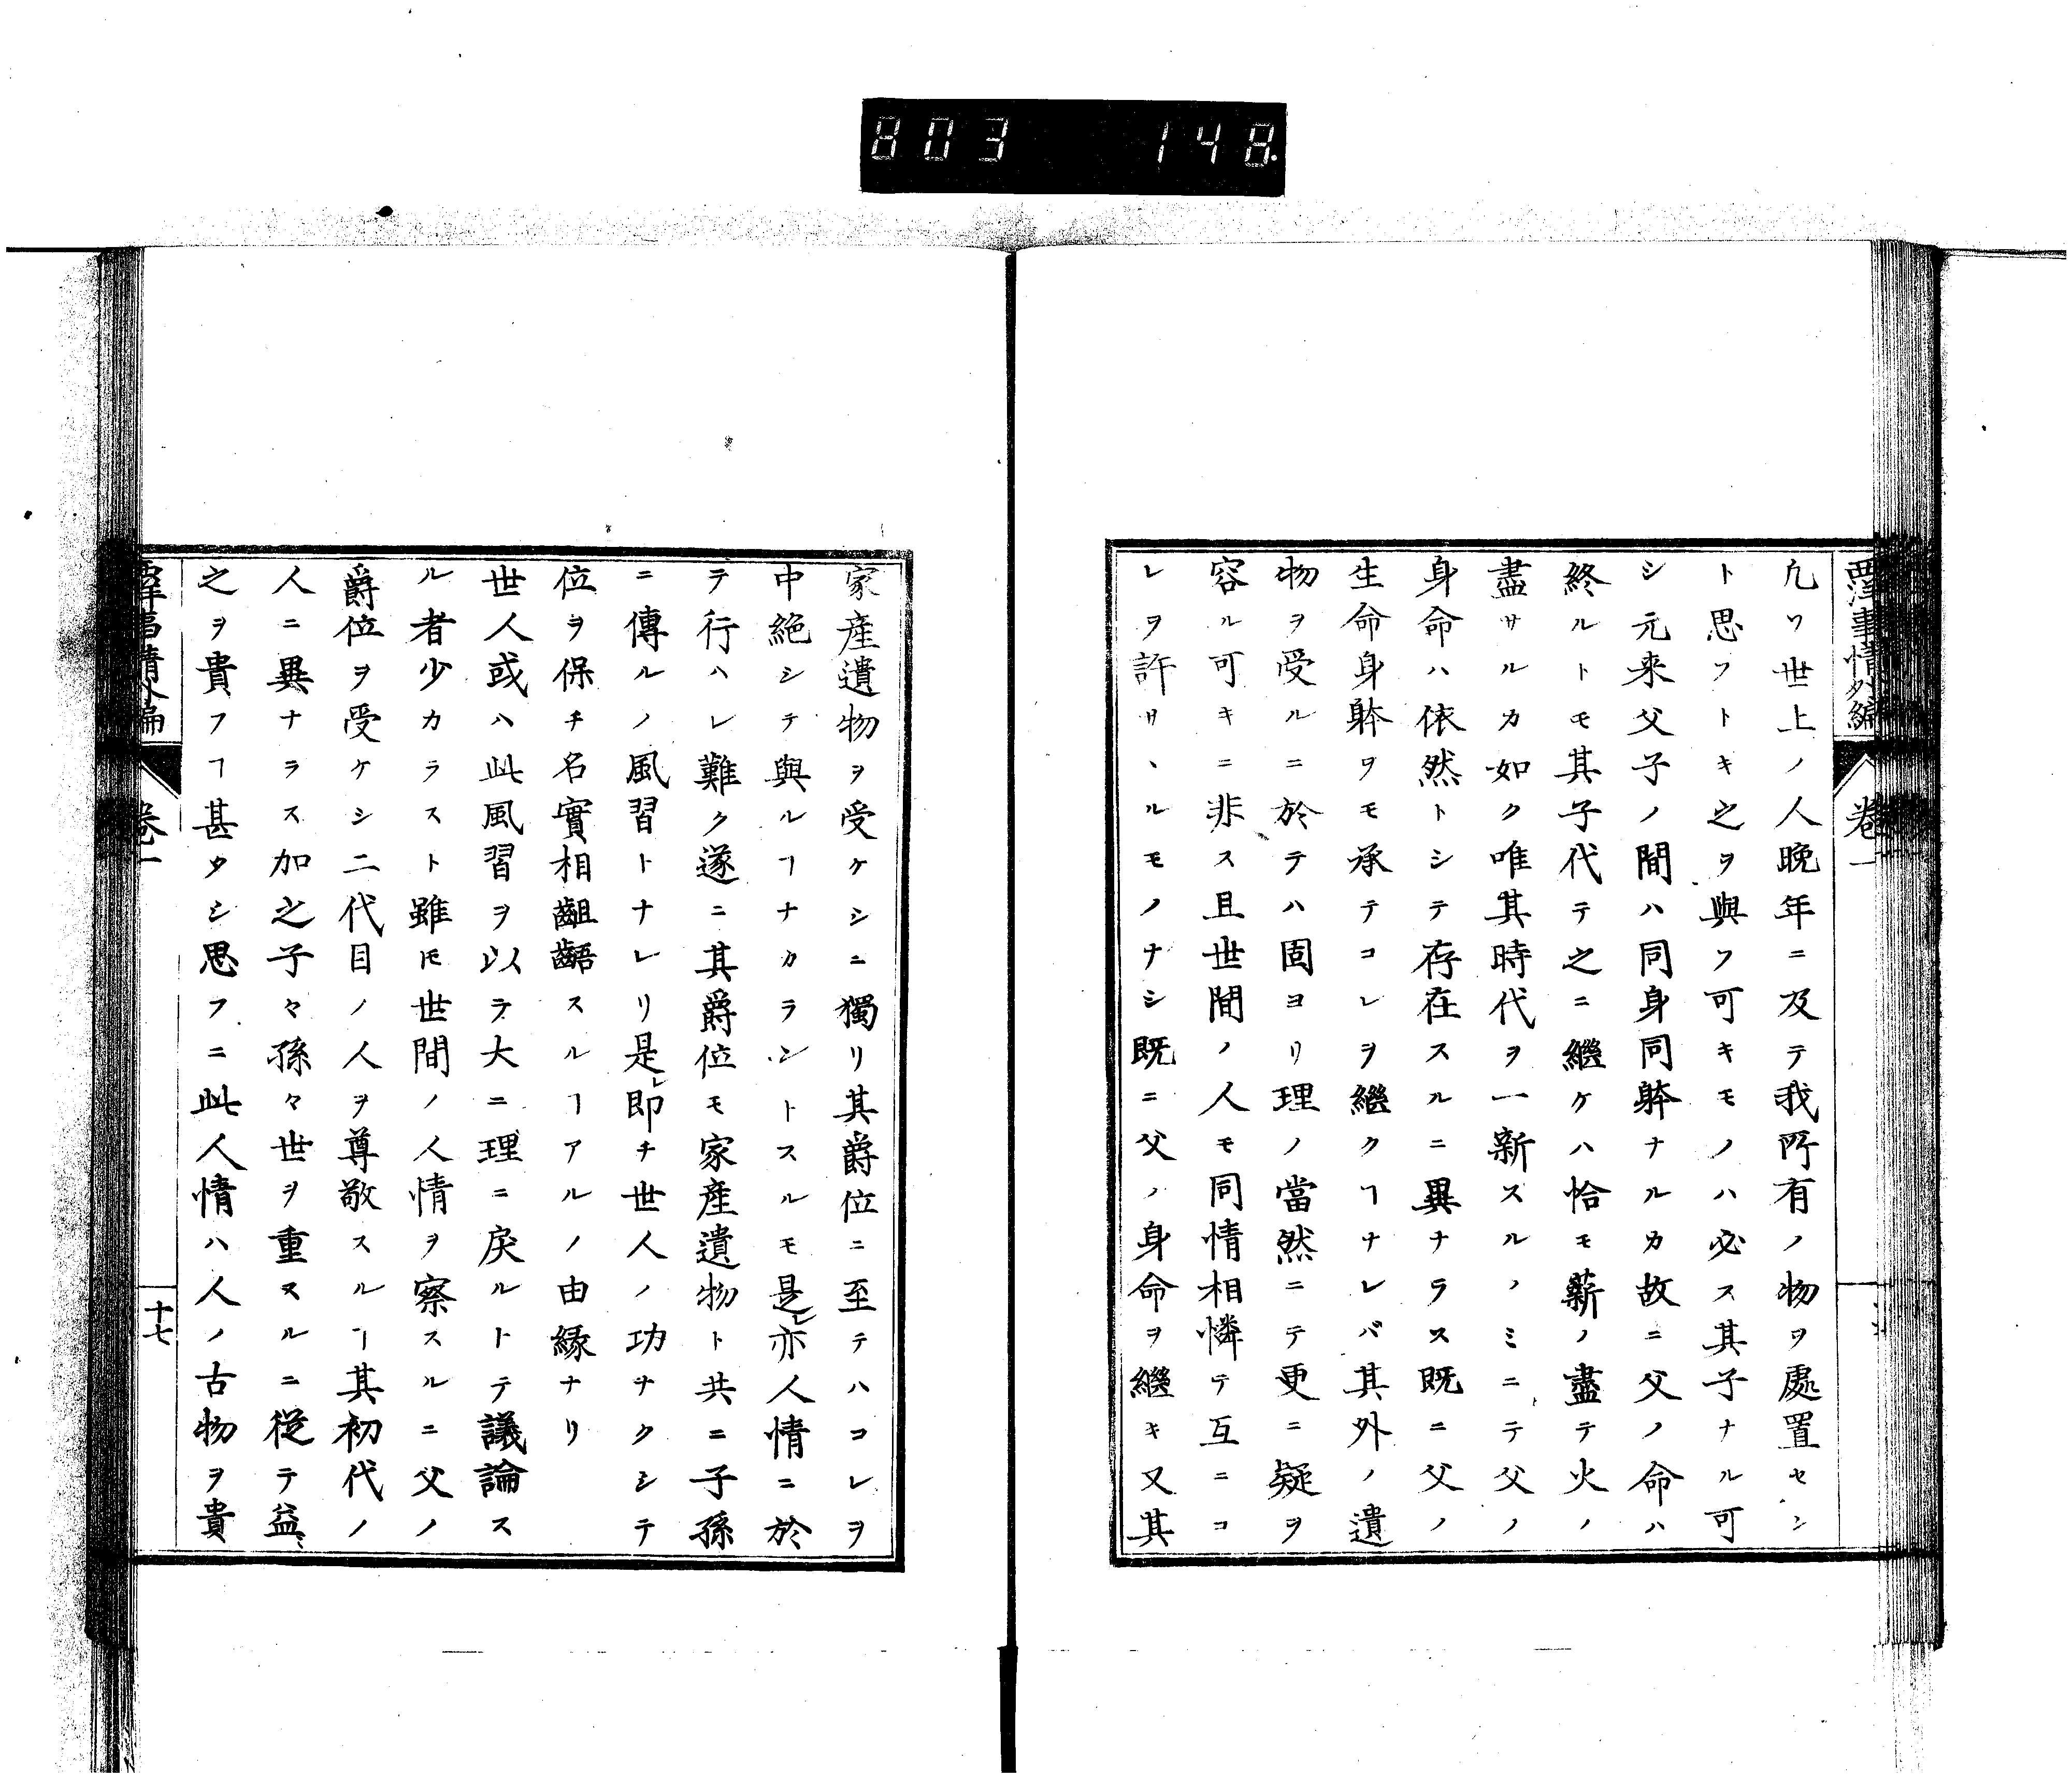 803 148
西洋事情外編 卷一
凢ソ世上ノ人晩年ニ及テ我所有ノ物ヲ處置セン
ト思フトキ之ヲ與フ可キモノハ必ス其子ナル可
シ元来父子ノ間ハ同身同躰ナルカ故ニ父ノ命ハ
終ルトモ其子代テ之ニ繼ケハ恰モ薪ノ盡テ火ノ
盡サルカ如ク唯其時代ヲ一新スルノミニテ父ノ
身命ハ依然トシテ存在スルニ異ナラス既ニ父ノ
生命身躰ヲモ承テコレヲ繼クヿナレバ其外ノ遺
物ヲ受ルニ於テハ固ヨリ理ノ當然ニテ更ニ疑ヲ
容ル可キニ非ス且世間ノ人モ同情相憐テ互ニコ
レヲ許サヽルモノナシ既ニ父ノ身命ヲ繼キ又其
家産遺物ヲ受ケシニ獨リ其爵位ニ至テハコレヲ
中絶シテ與ルヿナカラントスルモ是レ亦人情ニ於
テ行ハレ難ク遂ニ其爵位モ家産遺物ト共ニ子孫
ニ傳ルノ風習トナレリ是レ即チ世人ノ功ナクシテ
位ヲ保チ名實相齟齬スルヿアルノ由縁ナリ
世人或ハ此風習ヲ以テ大ニ理ニ戻ルトテ議論ス
ル者少カラスト雖𪜈世間ノ人情ヲ察スルニ父ノ
爵位ヲ受ケシ二代目ノ人ヲ尊敬スルヿ其初代ノ
人ニ異ナラス加之子々孫々世ヲ重ヌルニ從テ益〻
之ヲ貴フヿ甚タシ思フニ此人情ハ人ノ古物ヲ貴
西洋事情外編 卷一 十七